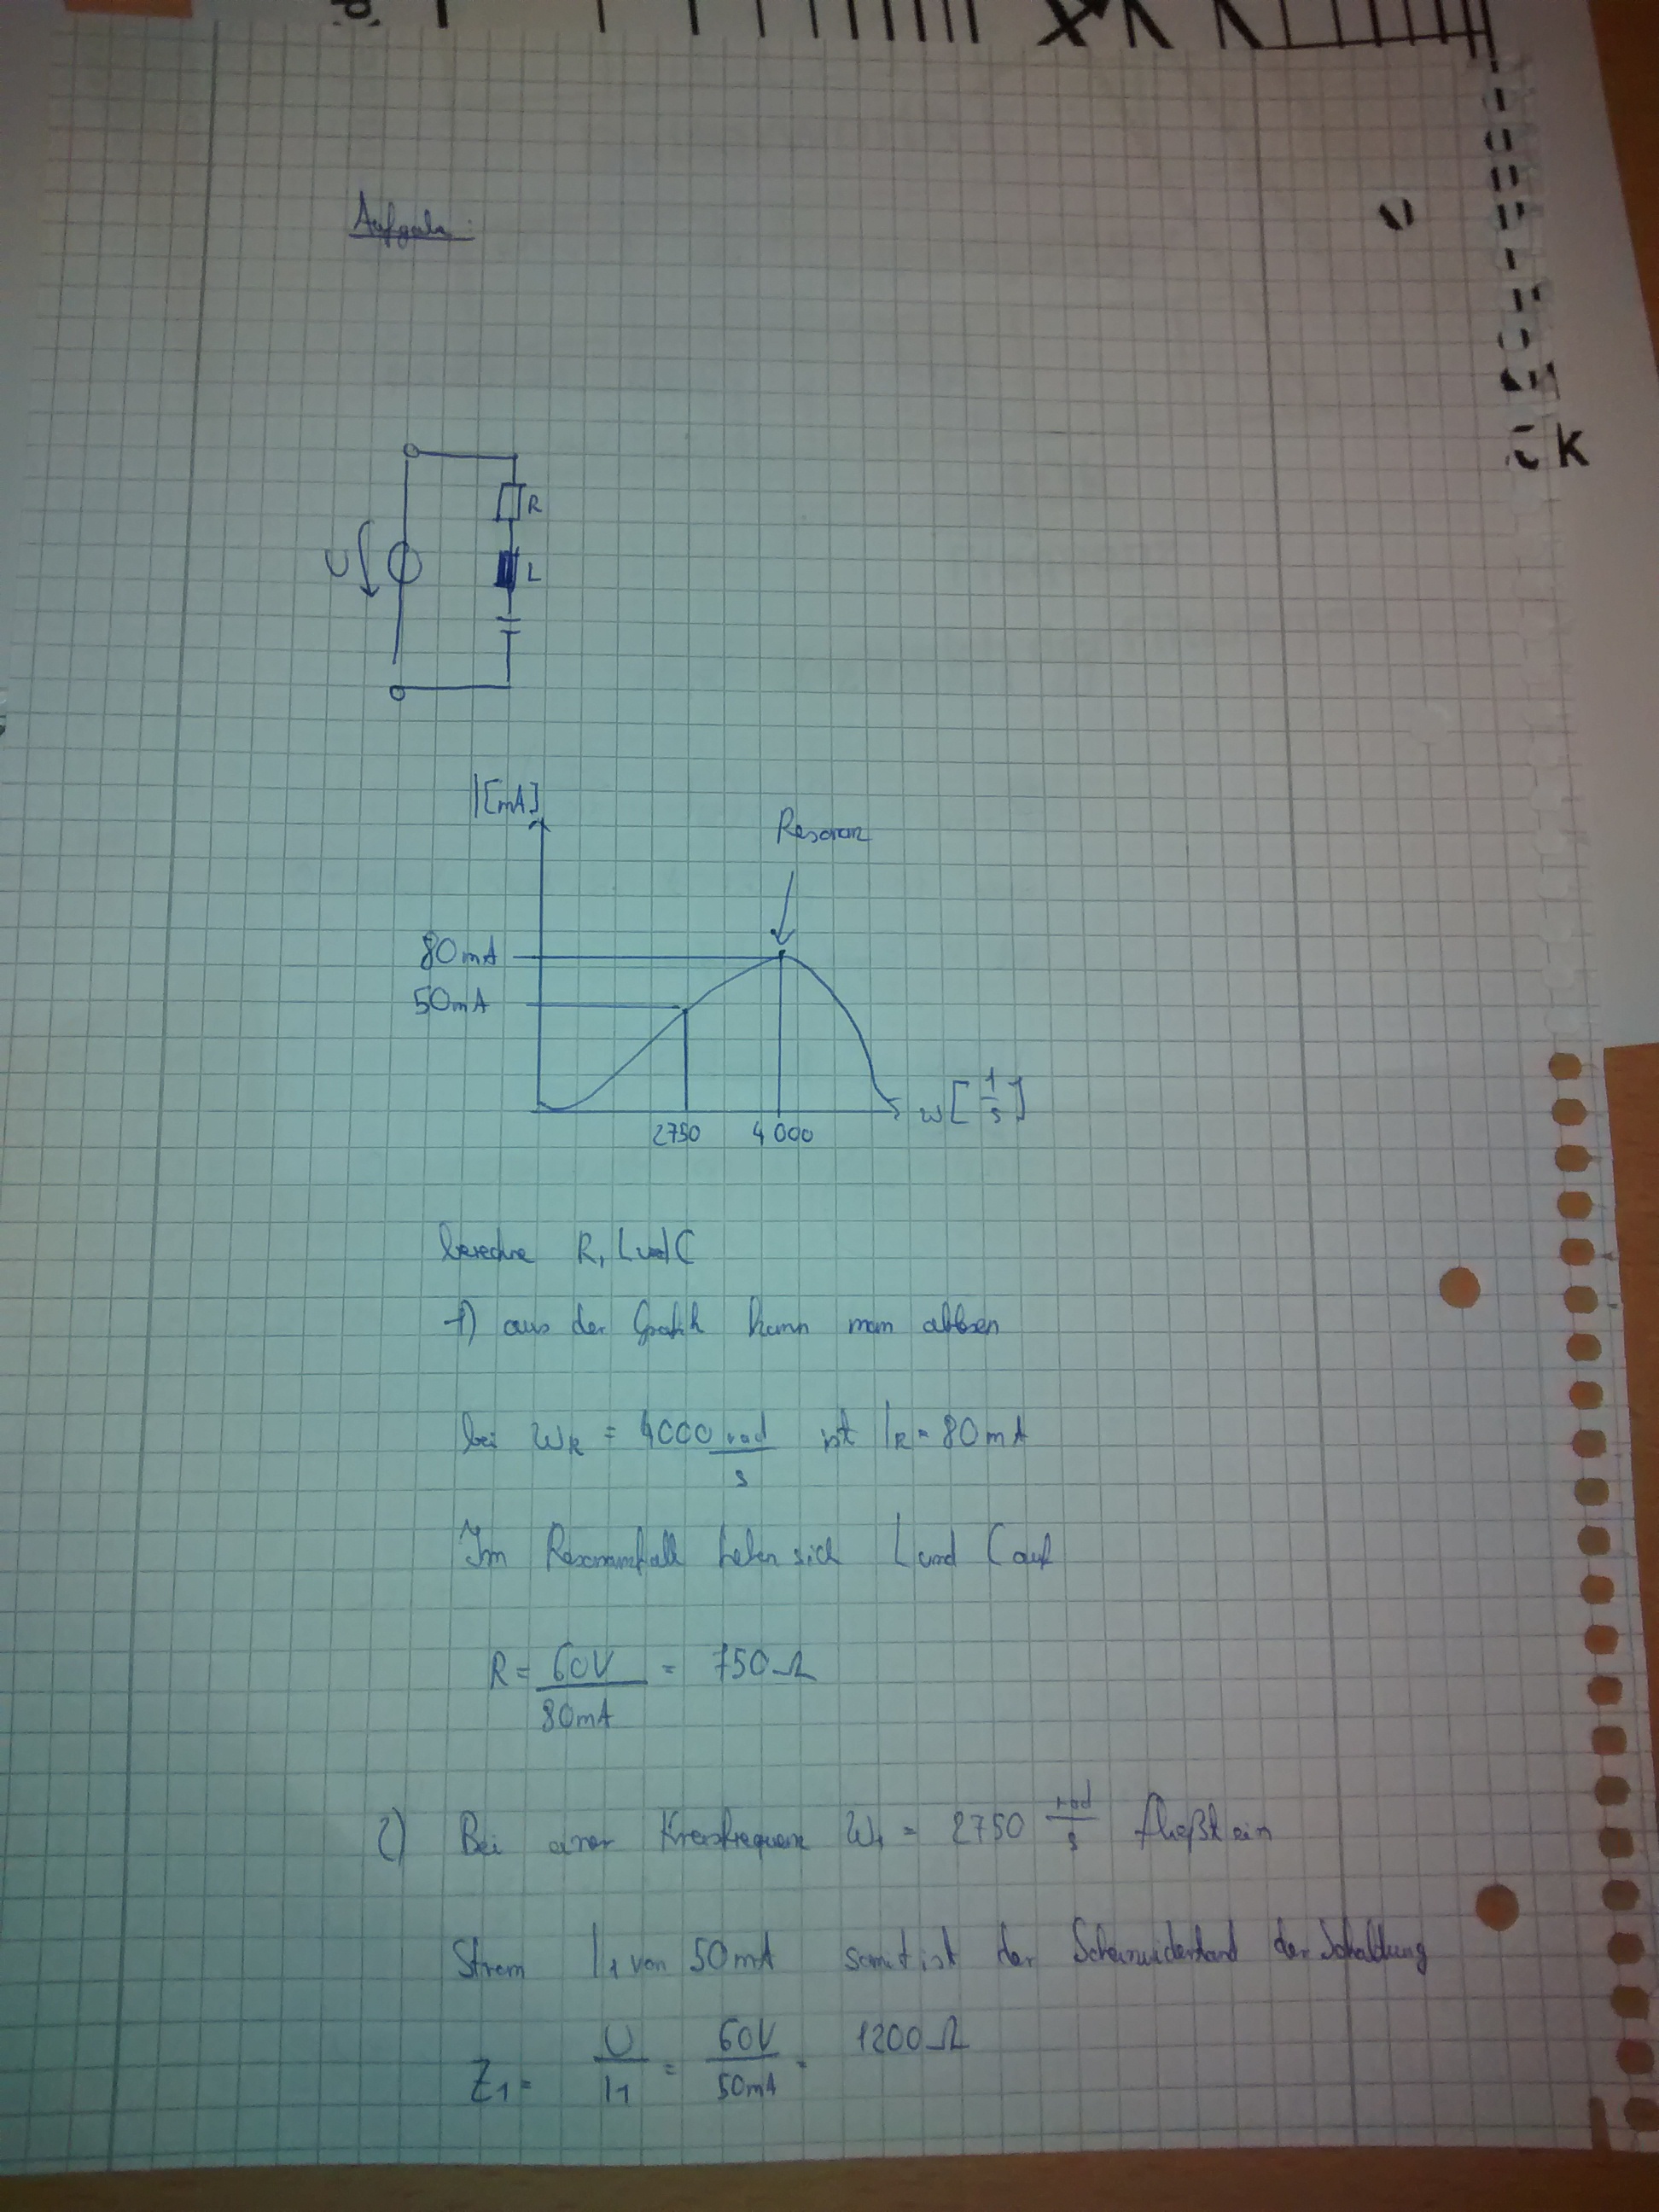 Aufgabe:
R
U
L
I[mA]
Resonanz
80mA
50mA
ω[1/s]
2750 4000
berechne R, L und C
1) aus der Grafik kann man ablesen
bei ωR = 4000 rad/s ist IR = 80mA
Im Resonanzfall heben sich L und C auf
R = 60V/80mA = 750Ω
2) Bei einer Kreisfrequenz ω1 = 2750 rad/s fließt ein
Strom I1 von 50mA somit ist der Scheinwiderstand der Schaltung
Z1 = U/I1 = 60V/50mA = 1200Ω